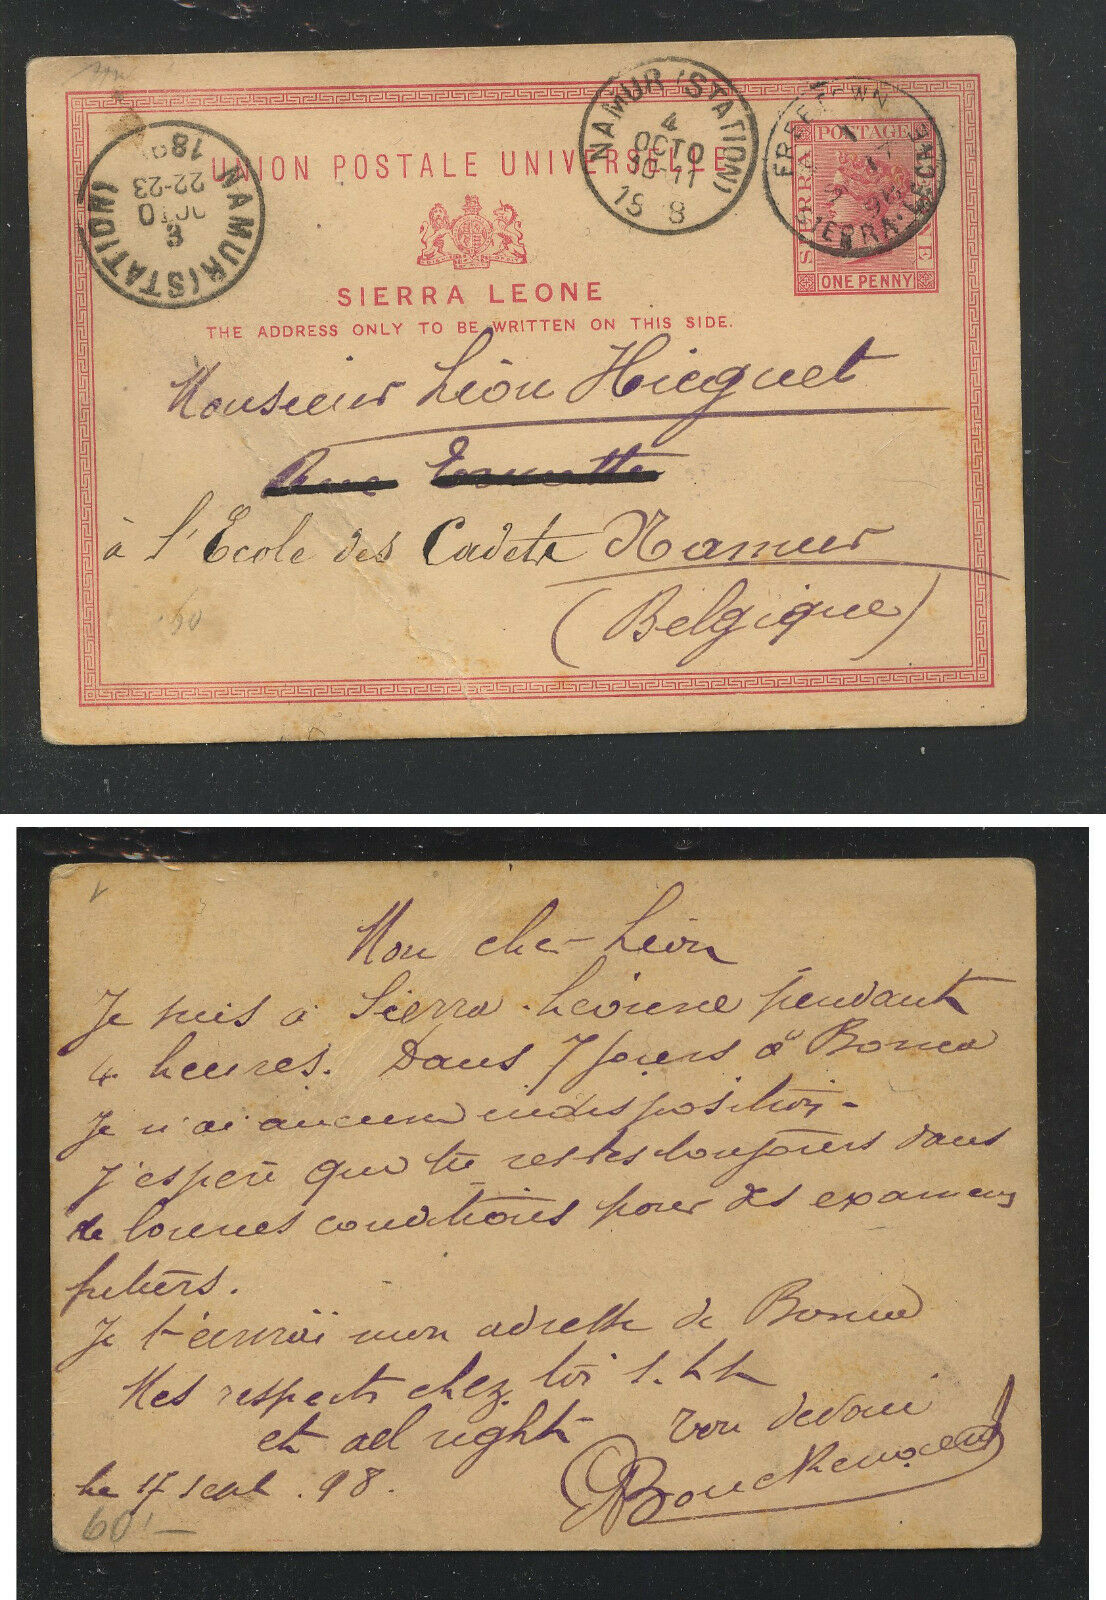 UNION POSTALE UNIVERSELLE
SIERRA LEONE
THE ADDRESS ONLY TO BE WRITTEN ON THIS SIDE.
NAMUR (STATION)
3
OCTO
22-23
18
NAMUR (STATION)
4
OCTO
10-11
18 8
FREETOWN
SIERRA-LEONE
17
98
POSTAGE
SIERRA LEONE
ONE PENNY
Monsieur Léon Hicguet
Rue
à l'Ecole des Cadets Namur
(Belgique)
60
Mon cher Léon
Je suis à Sierra-Leonne pendant
4 heures. Dans 7 jours à Boma
Je n'ai aucune indisposition.
J'espère que tu restes toujours dans
de bonnes conditions pour des examens
futurs.
Je t'enverrai mon adresse de Boma
Mes respects chez toi
et all right ton dévoué
le 17 sept. 98.
60.-